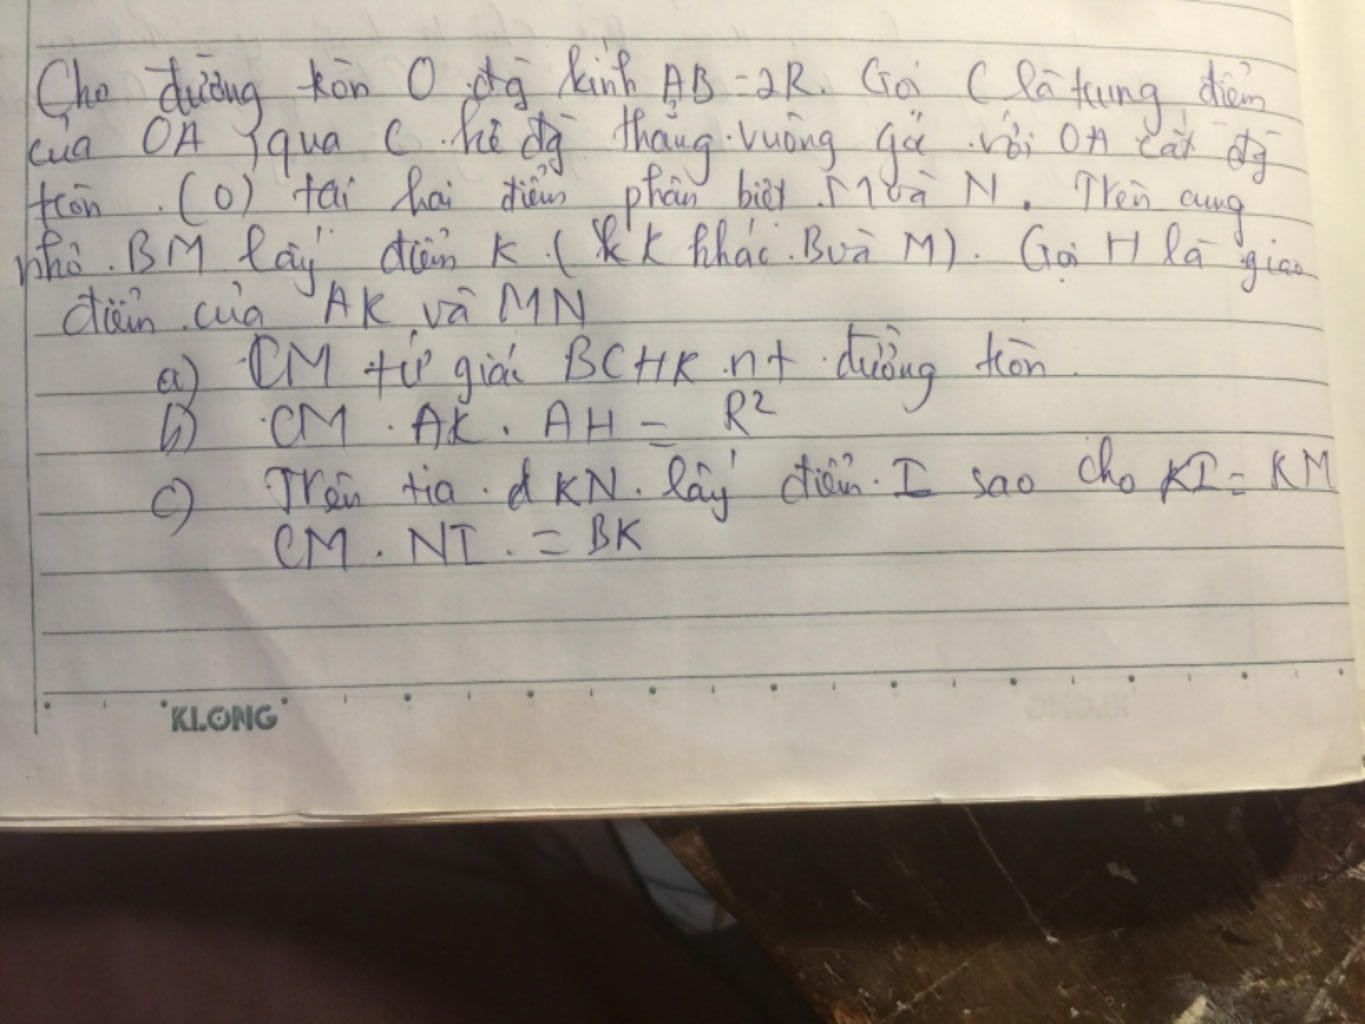 Cho đường tròn O đg kính AB = 2R. Gọi C là trung điểm
của OA, qua C kẻ đg thẳng vuông góc với OA cắt đg
tròn (O) tại hai điểm phân biệt M và N. Trên cung
nhỏ BM lấy điểm K (K khác B và M). Gọi H là giao
điểm của AK và MN
a) CM tứ giác BCHK nt đường tròn.
b) CM. AK. AH = R²
c) Trên tia KN lấy điểm I sao cho KI = KM
CM. NI = BK
KLONG